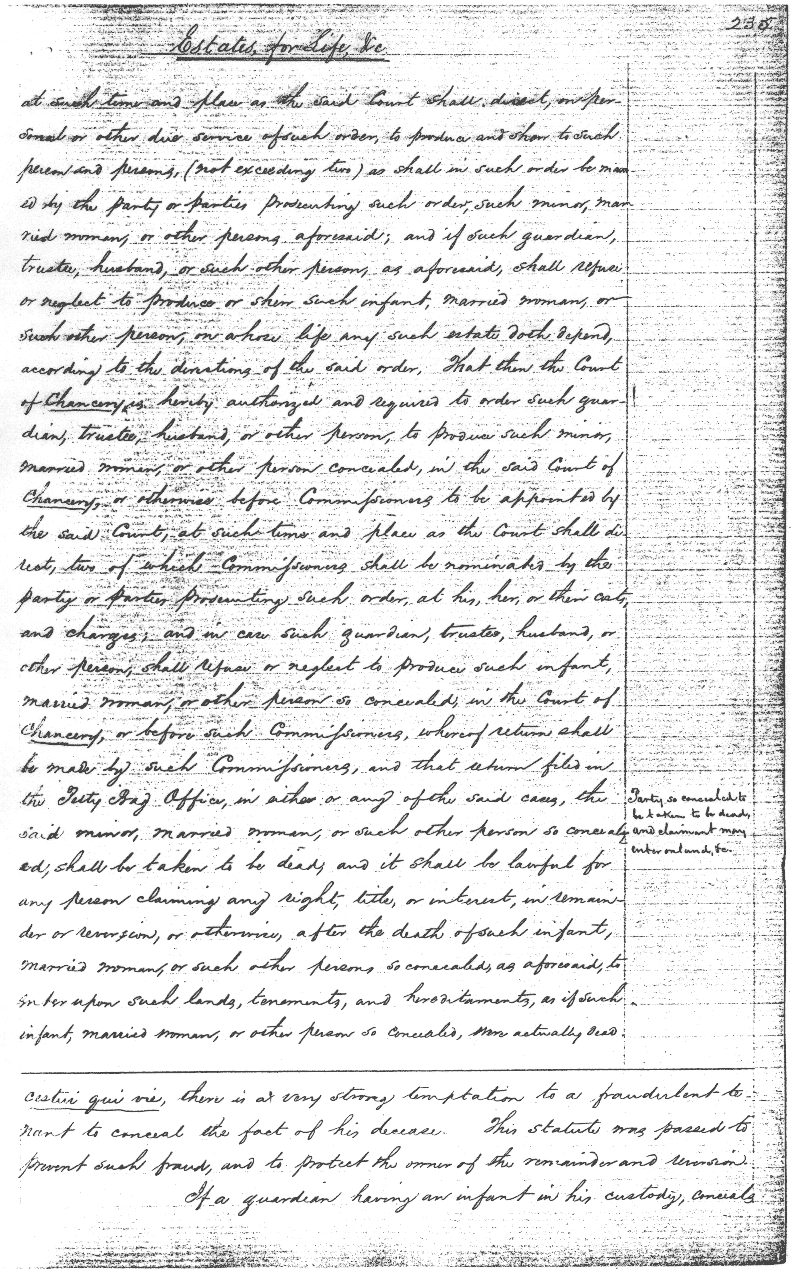 235
Estates, for Life, &c
at such time and place as the said Court shall direct, on per-
sonal or other due service of such order, to produce and show to such
person and persons, (not exceeding two) as shall in such order be nam
ed by the party or parties prosecuting such order, such minor, mar
ried woman, or other persons aforesaid; and if such guardian,
trustee, husband, or such other person, as aforesaid, shall refuse
or neglect to produce or shew such infant, married woman, or
such other person, on whose life any such estate doth depend,
according to the directions of the said order, That then the Court
of Chancery is hereby authorized and required to order such guar-
dian, trustee, husband, or other person, to produce such minor,
married woman, or other person concealed, in the said Court of
Chancery, or otherwise before Commissioners to be appointed by
the said Court, at such time and place as the Court shall di-
rect, two of which Commissioners shall be nominated by the
party or parties prosecuting such order, at his, her, or their costs,
and charges; and in case such guardian, trustee, husband, or
other person, shall refuse or neglect to produce such infant,
married woman, or other person so concealed, in the Court of
Chancery, or before such Commissioners, whereof return shall
be made by such Commissioners, and that return filed in
the Petty Bag Office, in either or any of the said cases, the
said minor, married woman, or such other person so conceal-
ed, shall be taken to be dead; and it shall be lawful for
any person claiming any right, title, or interest, in remain-
der or reversion, or otherwise, after the death of such infant,
married woman, or such other persons so concealed, as aforesaid, to
enter upon such lands, tenements, and hereditaments, as if such
infant, married woman, or other person so concealed, were actually dead.
Party so concealed to
be taken to be dead,
and claimant may
enter on land, &c.
cestui qui vie, there is a very strong temptation to a fraudulent te-
nant to conceal the fact of his decease. This statute was passed to
prevent such fraud, and to protect the owner of the remainder and reversion.
If a guardian having an infant in his custody, conceals